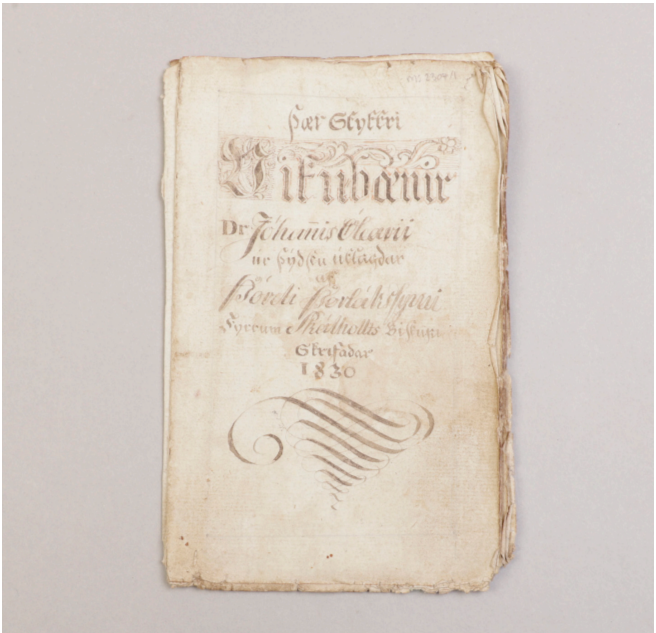 Þær Stykkri
Vikubænir
Dr Jóhañis Olearii
úr Þýdsku útlagdar
af
Þórdi Þorlákssyni
Fyrrum Skálhollts Biskupi
Skrifadar
1830